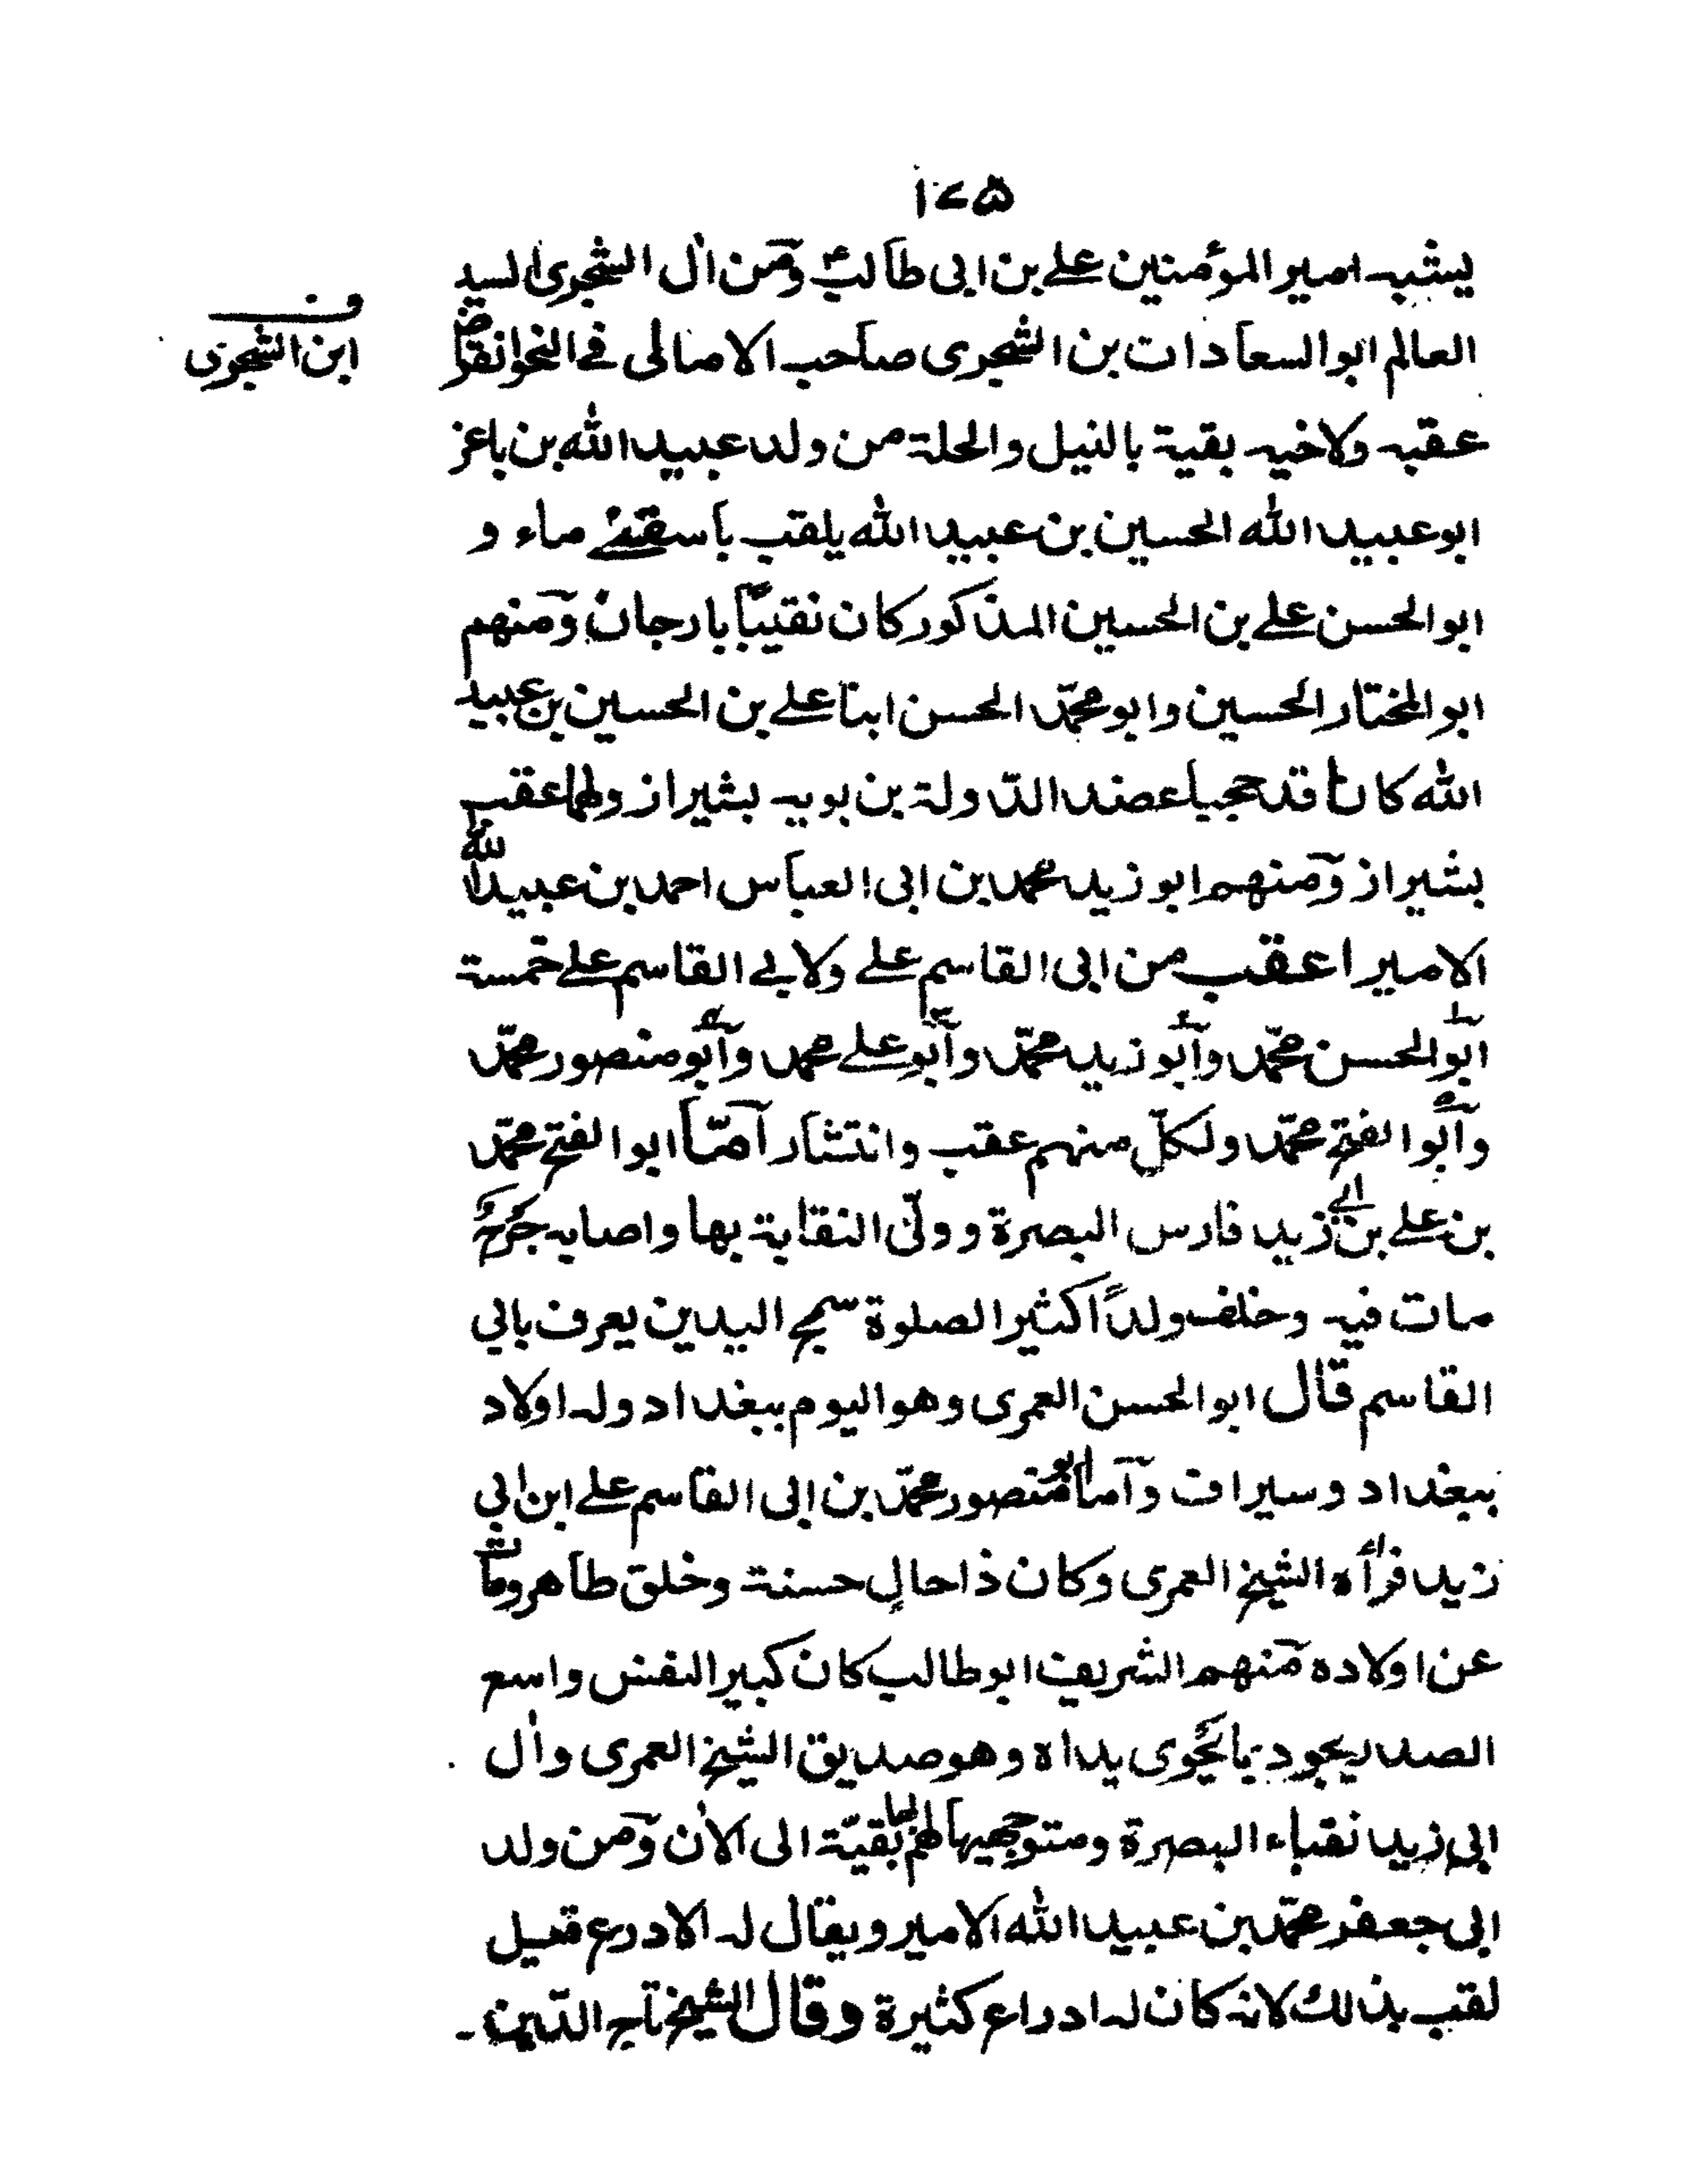 ۱۷۵
يشبه امير المؤمنين على بن ابى طالبؑ ومن اٰل الشجرى السيد
ف
العالم ابو السعادات بن الشجرى صاحب الامالى فى النحو انقرض
ابن الشجرى
عقبه ولاخيه بقية بالنيل والحلة من ولد عبيد الله بن باغز
ابو عبيد الله الحسين بن عبيد الله يلقب باسقنى ماء و
ابو الحسن على بن الحسين المذكور كان نقيبًا بارجان ومنهم
ابو المختار الحسين وابو محمّد الحسن ابنا على بن الحسين بن عبيد
الله كانا قد حجبا عضد الدّولة بن بويه بشيراز ولهما عقب
بشيراز ومنهم ابو زيد محمد بن ابى العباس احمد بن عبيد الله
الامير اعقب من ابى القاسم على ولابى القاسم على خمسة
ابو الحسن محمّد وابو زيد محمّد وابو على محمد وابو منصور محمّد
وابو الفتح محمّد ولكلّ منهم عقب وانتشار امّا ابو الفتح محمّد
بن على بن ابى زيد فارس البصرة وولّى النقابة بها واصابه جُرحٌ
مات فيه وخلف ولدًا كثير الصلوة سمح اليدين يعرف بابي
القاسم قال ابو الحسن العمرى وهو اليوم ببغداد وله اولاد
ببغداد وسيراف واما ابو منصور محمّد بن ابى القاسم على ابن ابي
زيد فراٰه الشيخ العمرى وكان ذا حالٍ حسنة وخلق طاهر ومات
عن اولاده منهم الشريف ابو طالب كان كبير النفس واسع
الصدر يجود بما يحوى يداه وهو صديق الشيخ العمرى واٰل
ابى زيد نقباء البصرة ومتوجهيها لهم بها بقيّة الى الاٰن ومن ولد
ابى جعفر محمّد بن عبيد الله الامير ويقال له الادرع قيل
لقب بذلك لانه كان له ادراع كثيرة وقال الشيخ تاج الدّين۔